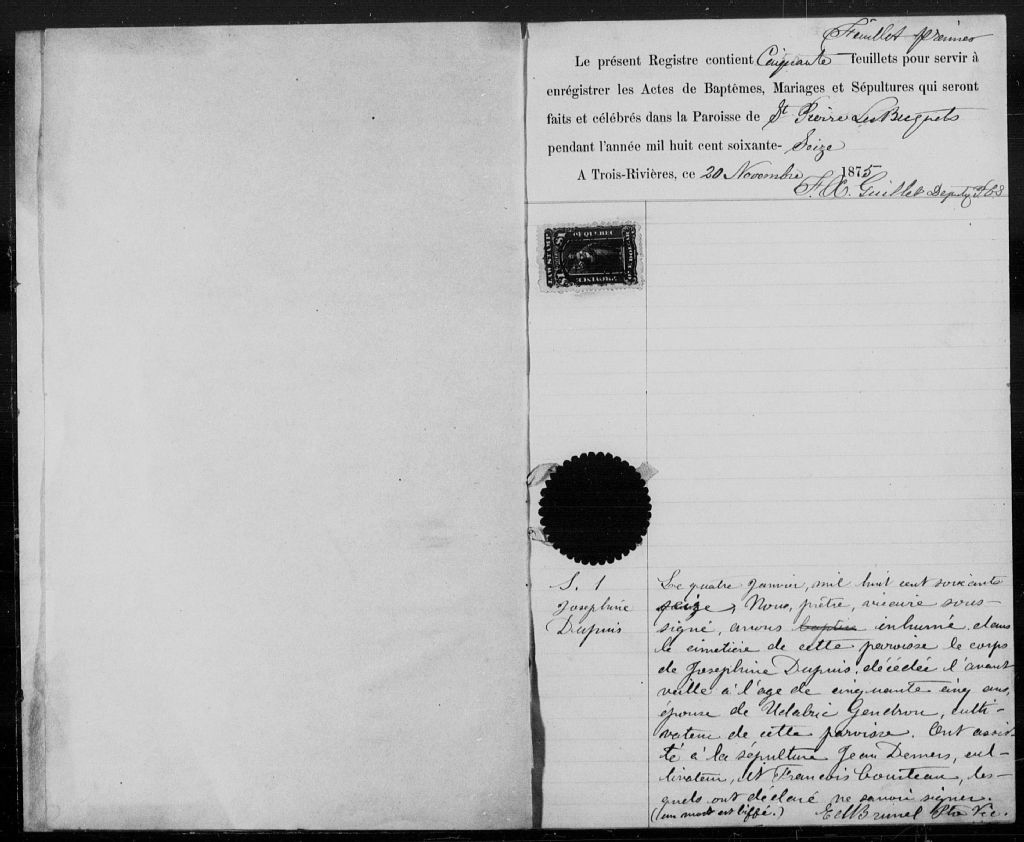 Feuillet premier
Le présent Registre contient Cinquante Feuillets pour servir à
enrégistrer les Actes de Baptêmes, Mariages et Sépultures qui seront
faits et célébrés dans la Paroisse de St Pierre Les Becquets
pendant l'année mil huit cent soixante- Seize
A Trois-Rivières, ce 20 Novembre 1875
F. X. Guillet Deputy
LAW STAMP
$1
QUEBEC
PROVINCE
S. 1
Josephine
Dupuis
Le quatre Janvier, mil huit cent soixante
seize, Nous, prêtre, vicaire sous-
signé, avons baptisé inhumé dans
le cimetière de cette paroisse le corps
de Josephine Dupuis, décédée l'avant
veille à l'âge de cinquante cinq ans,
épouse de Gendron, culti-
vateur de cette paroisse. Ont assis-
té à la sépulture Jean Demers, cul-
tivateur, et François Courteau, les-
quels ont déclaré ne savoir signer.
(un mot est biffé.) Ed Brunel Ptre Vic.